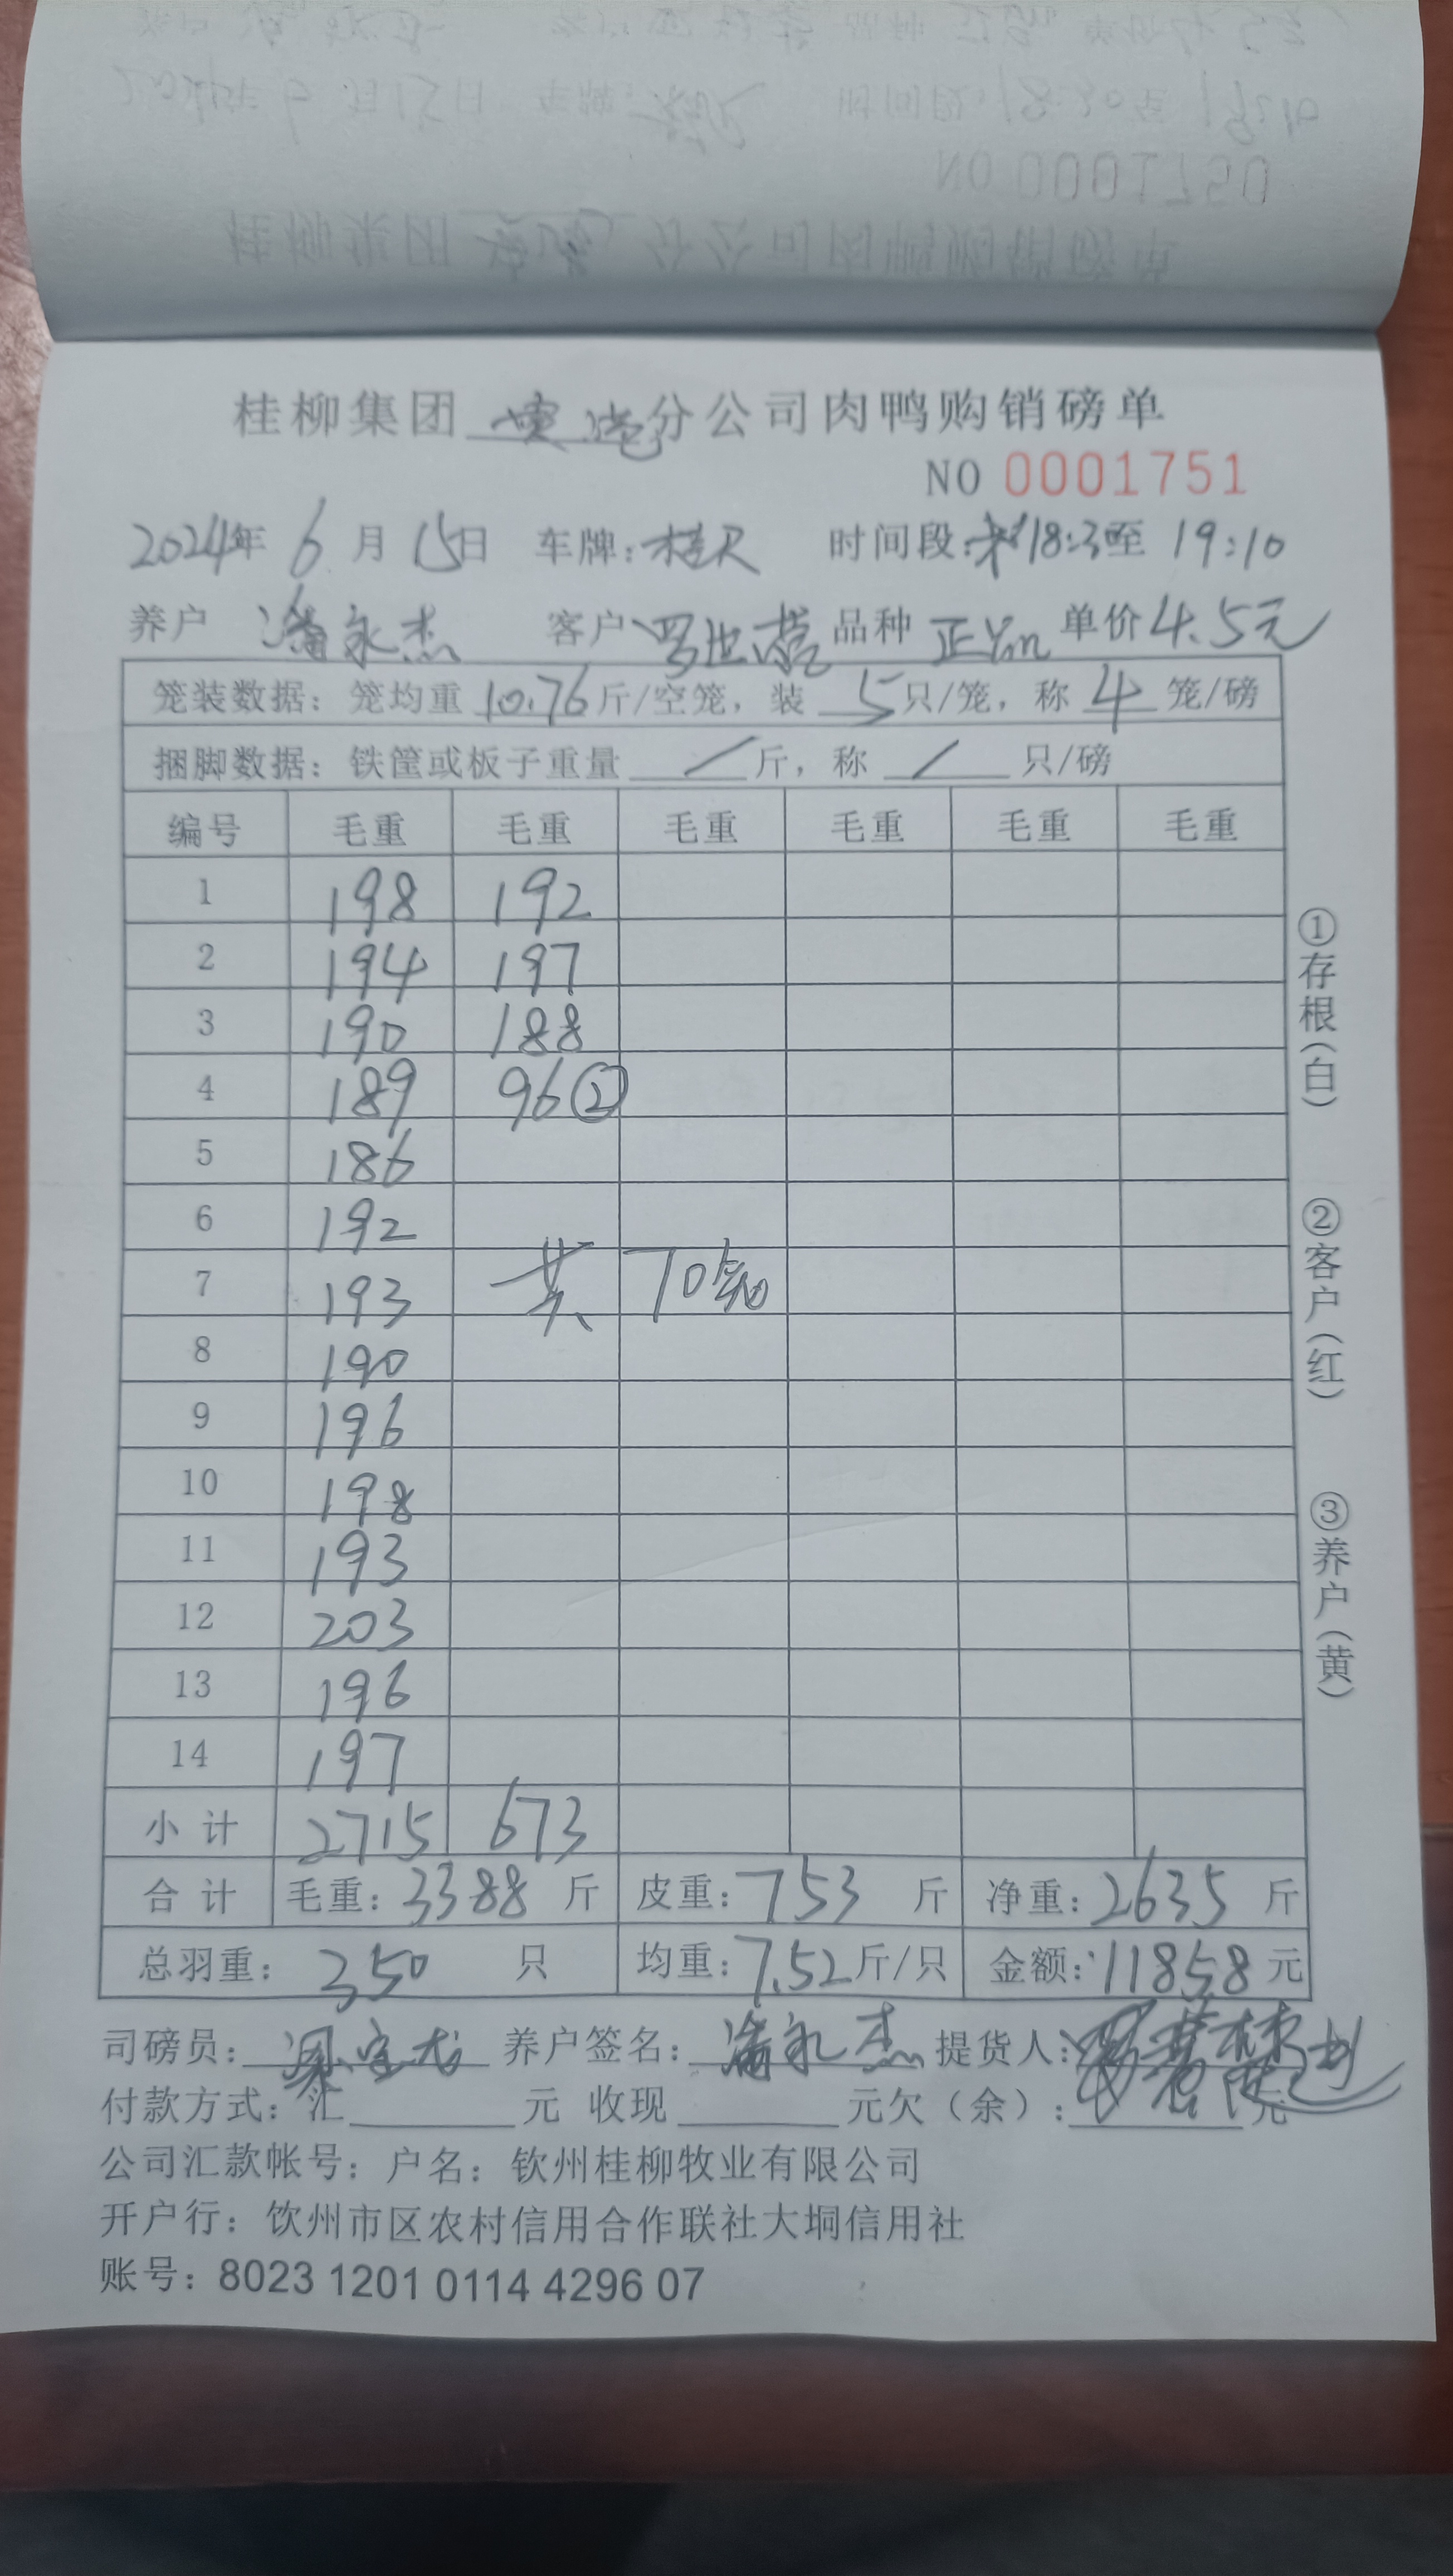 NO 0001750
桂柳集团 分公司肉鸭购销磅单
NO 0001751
2024年 6 月 15日 车牌: 时间段: 18:3至 19:10
养户 潘永杰 客户 罗世 品种 正品 单价 4.5元
笼装数据: 笼均重 10.76 斤/空笼, 装 5 只/笼, 称 4 笼/磅
捆脚数据: 铁筐或板子重量 / 斤, 称 / 只/磅
编号 毛重 毛重 毛重 毛重 毛重 毛重
1 198 192
2 194 197
3 190 188
4 189 96②
5 186
6 192
7 193 共 70笼
8 190
9 196
10 198
11 193
12 203
13 196
14 197
小 计 2715 673
合 计 毛重: 3388 斤 皮重: 753 斤 净重: 2635 斤
总羽重: 350 只 均重: 7.52 斤/只 金额: 11858 元
司磅员: 养户签名: 潘永杰 提货人:
付款方式: 汇 元 收现 元欠(余): 元
公司汇款帐号: 户名: 钦州桂柳牧业有限公司
开户行: 饮州市区农村信用合作联社大垌信用社
账号: 8023 1201 0114 4296 07
①存根(白)
②客户(红)
③养户(黄)